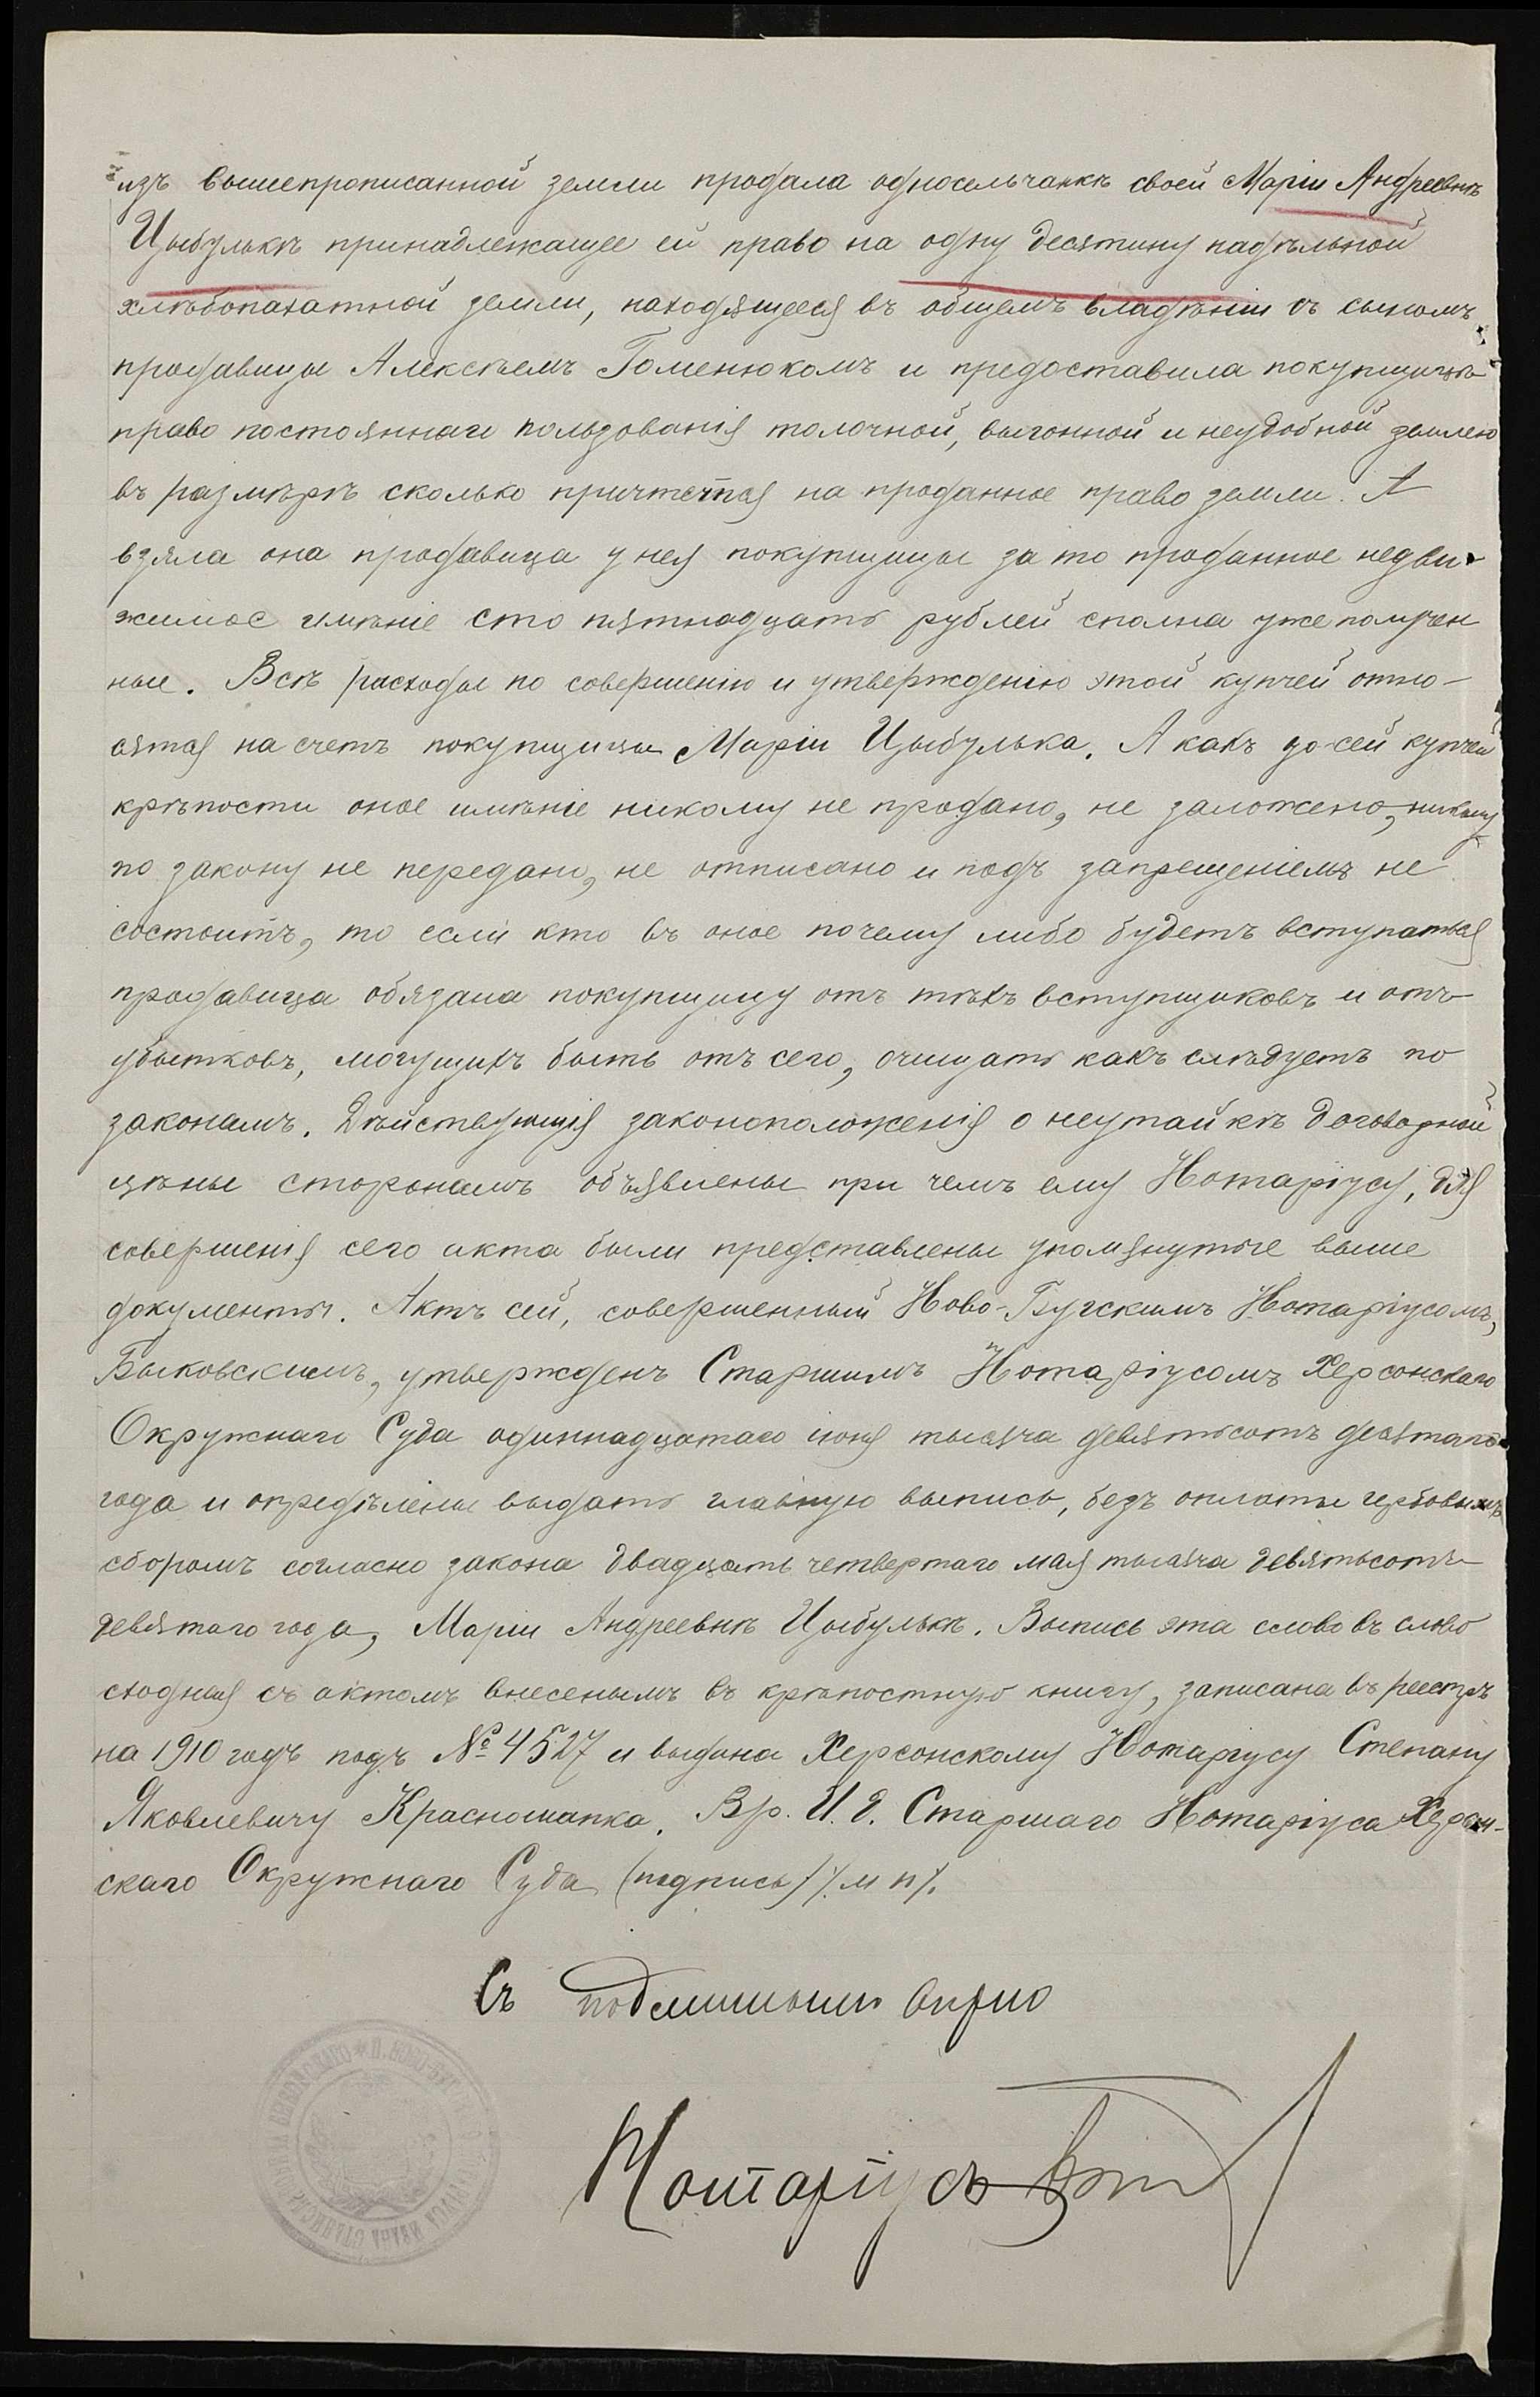 изъ вышепрописанной земли продала односельчанкѣ своей Маріи Андреевнѣ
Цыбулькѣ принадлежащее ей право на одну десятину надѣльной
хлѣбопахатной земли, находящееся въ общемъ владѣніи съ сыномъ
продавицы Алексѣемъ Гоменюкомъ и предоставила покупщицѣ
право постояннаго пользованія толочной, выгонной и неудобной землею
въ размѣрѣ сколько причтется на проданное право земли. А
взяла она продавица у нея покупщицы за то проданное недви-
жимое имѣніе сто пятнадцать рублей сполна уже получен
ные. Всѣ расходы по совершенію и утвержденію этой купчей отно-
сятся на счетъ покупщицы Маріи Цыбулька. А какъ до сей купчей
крѣпости оное имѣніе никому не продано, не заложено, никому
по закону не передано, не отписано и подъ запрещеніемъ не
состоитъ, то если кто въ оное почему либо будетъ вступаться
продавица обязана покупщицу отъ тѣхъ вступщиковъ и отъ
убытковъ, могущихъ быть отъ сего, очищать какъ слѣдуетъ по
законамъ. Дѣйствующія законоположенія о неутайкѣ договорной
цѣны сторонамъ объявлены при чемъ ему Нотаріусу, для
совершенія сего акта были представлены упомянутые выше
документы. Актъ сей, совершенный Ново-Бугскимъ Нотаріусомъ,
Быковскимъ, утвержденъ Старшимъ Нотаріусомъ Херсонскаго
Окружнаго Суда одиннадцатаго іюня тысяча девятьсотъ десятаго
года и опредѣлены выдать главную выпись, безъ оплаты гербовымъ
сборомъ согласно закона двадцать четвертаго мая тысяча девятьсотъ
девятаго года, Маріи Андреевнѣ Цыбулькѣ. Выпись эта слово въ слово
сходная съ актомъ внесенымъ въ крѣпостную книгу, записана въ реестръ
на 1910 годъ подъ № 4527 и выдана Херсонскому Нотаріусу Степану
Яковлевичу Красношапка. Вр. И. д. Старшаго Нотаріуса Херсон-
скаго Окружнаго Суда (подпись) /. м п /.
Съ подлиннымъ вѣрно
Нотаріусъ